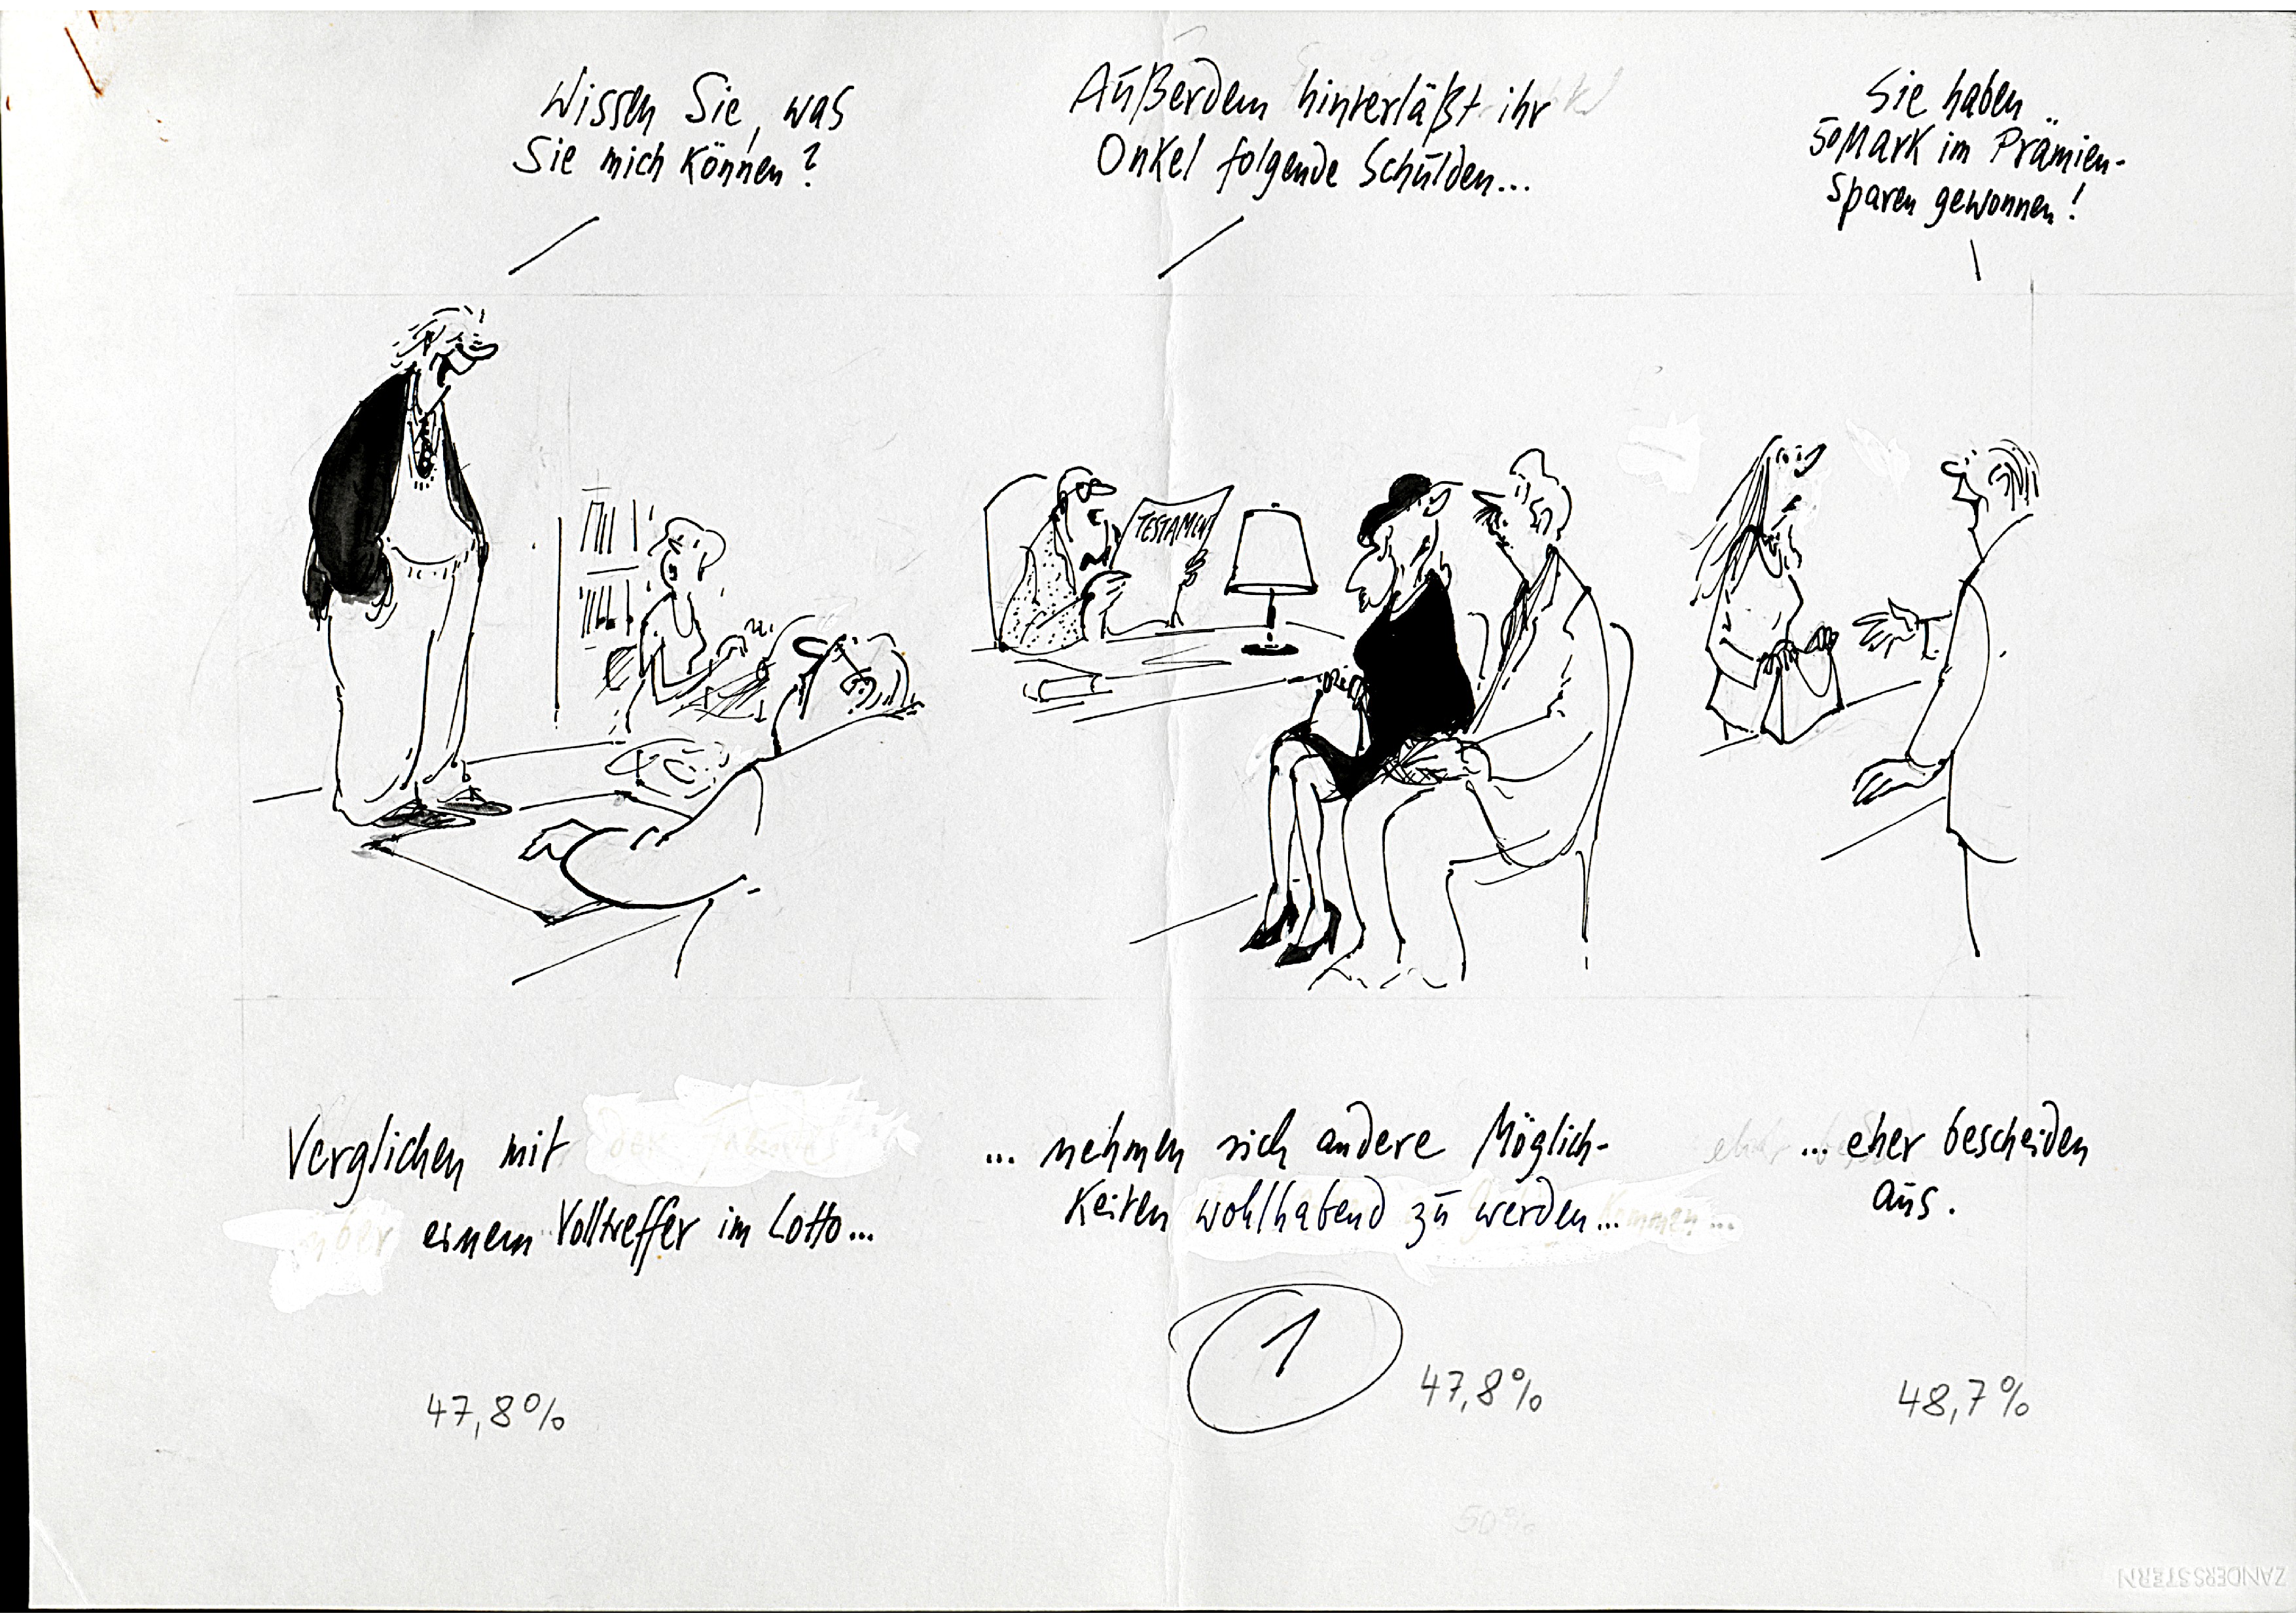 Wissen Sie, was
Sie mich können?
Außerdem hinterläßt ihr
Onkel folgende Schulden...
Sie haben
50 Mark im Prämien-
sparen gewonnen!
TESTAMENT
Verglichen mit
einem Volltreffer im Lotto...
... nehmen sich andere Möglich-
keiten wohlhabend zu werden...
... eher bescheiden
aus.
1
47,8%
47,8%
48,7%
50%
ZANDERSSTERN